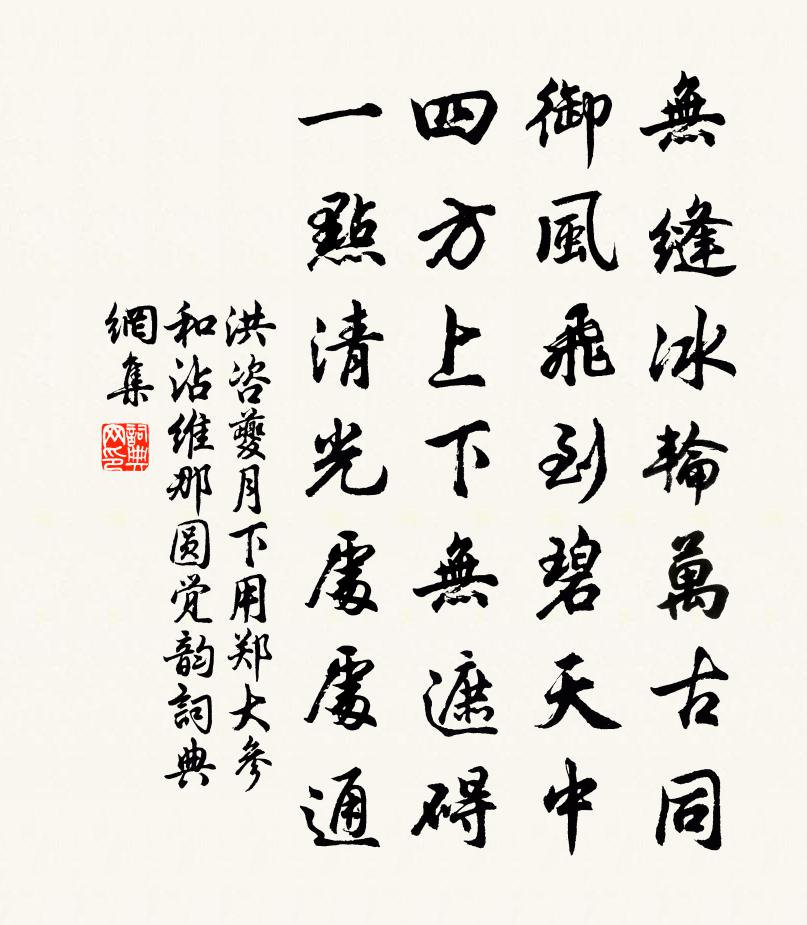 無縫冰輪萬古同
御風飛到碧天中
四方上下無遮碍
一點清光處處通
洪咨夔月下用郑大參
和沾維那圆觉韵詞典
網集
詞典
网印